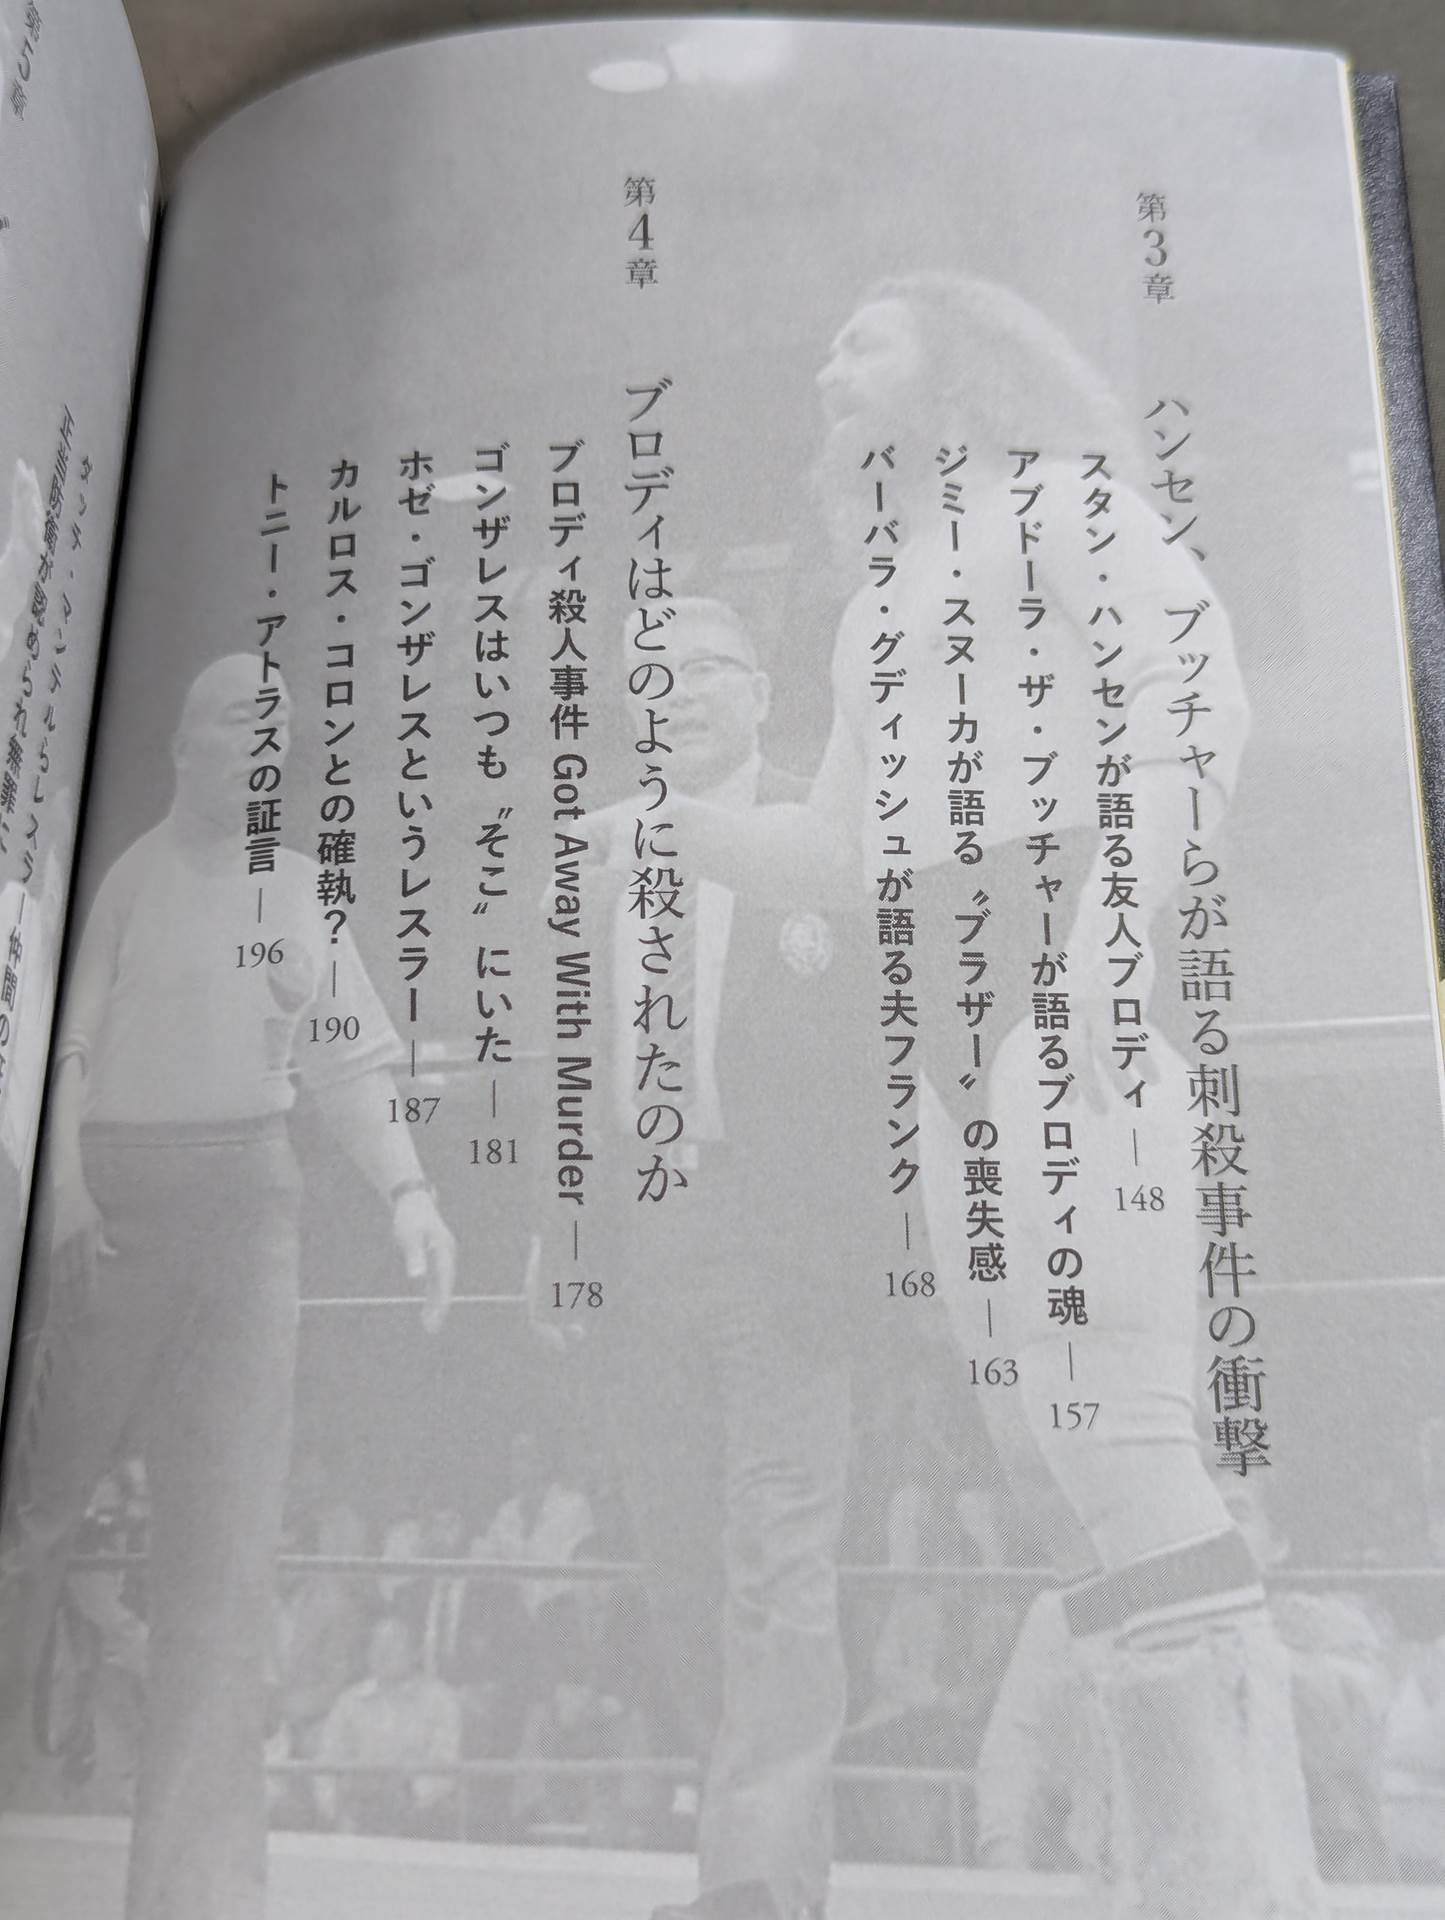 第3章
ハンセン、ブッチャーらが語る刺殺事件の衝撃
スタン・ハンセンが語る友人ブロディ — 148
アブドーラ・ザ・ブッチャーが語るブロディの魂 — 157
ジミー・スヌーカが語る〝ブラザー〟の喪失感 — 163
バーバラ・グディッシュが語る夫フランク — 168
第4章
ブロディはどのように殺されたのか
ブロディ殺人事件 Got Away With Murder — 178
ゴンザレスはいつも〝そこ〟にいた — 181
ホゼ・ゴンザレスというレスラー — 187
カルロス・コロンとの確執? — 190
トニー・アトラスの証言 — 196
第5章
ダッチ・マンテルらレスラー仲間の
正当防衛が認められ無罪